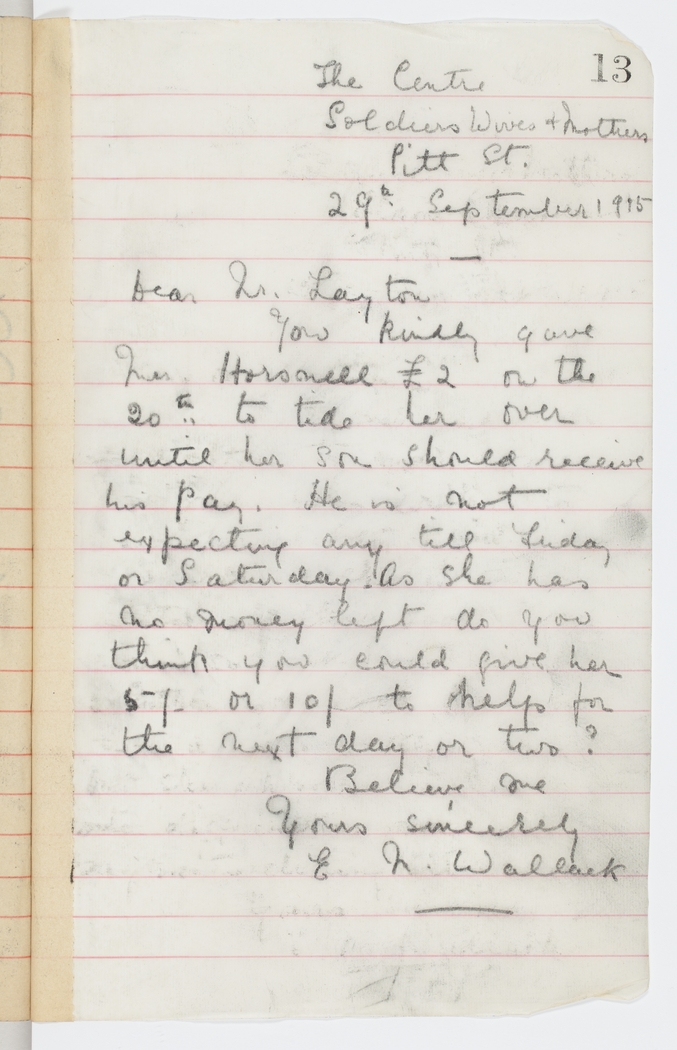 13
The Centre
Soldiers Wives & Mothers
Pitt St.
29th September 1915
Dear Mr. Layton
You kindly gave
Mrs. Horsnell £2 on the
20th to tide her over
until her son should receive
his pay. He is not
expecting any till Friday
or Saturday. As she has
no money left do you
think you could give her
5/- or 10/ to help for
the next day or two?
Believe me
Yours sincerely
E M. Wallack